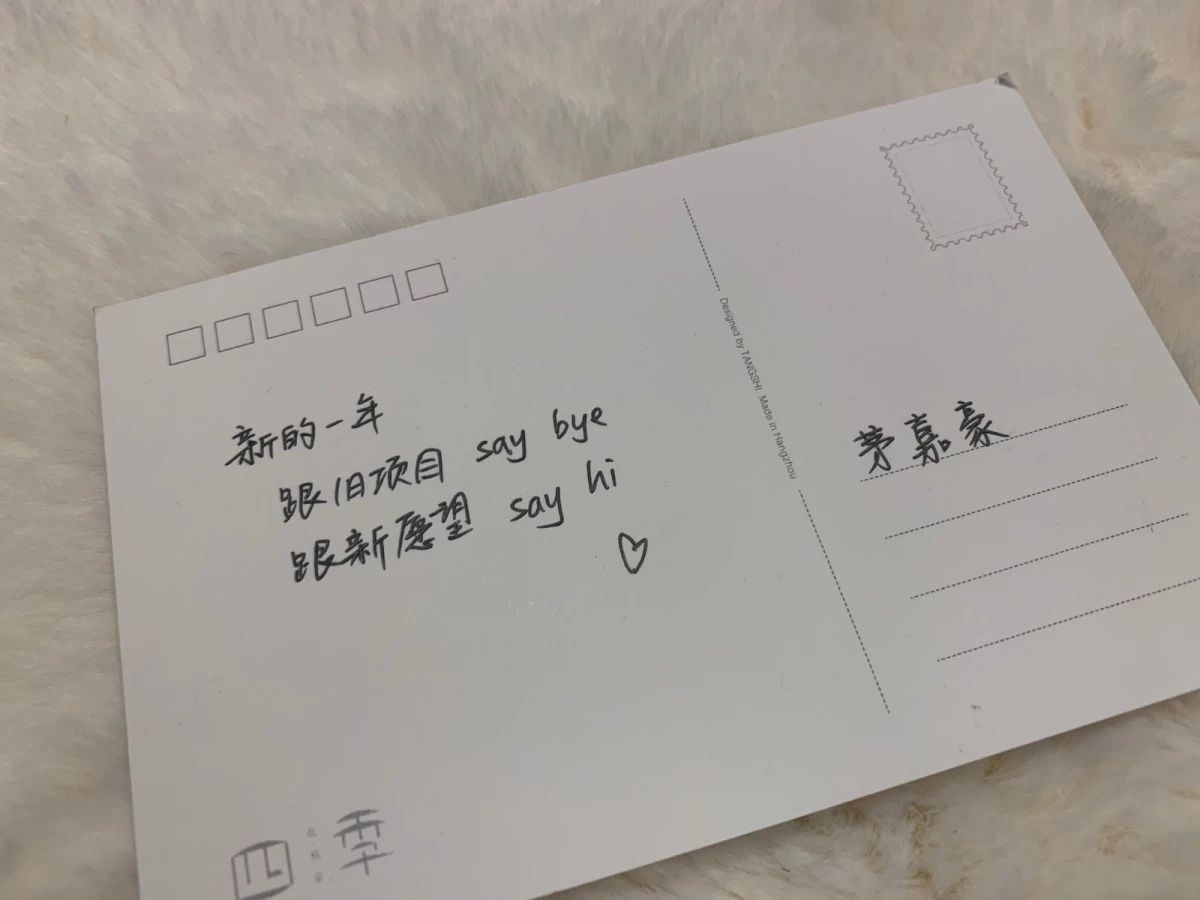 新的一年
跟旧项目 say bye
跟新愿望 say hi
Designed by TANGSHI Made in Hangzhou
茅嘉豪
四季